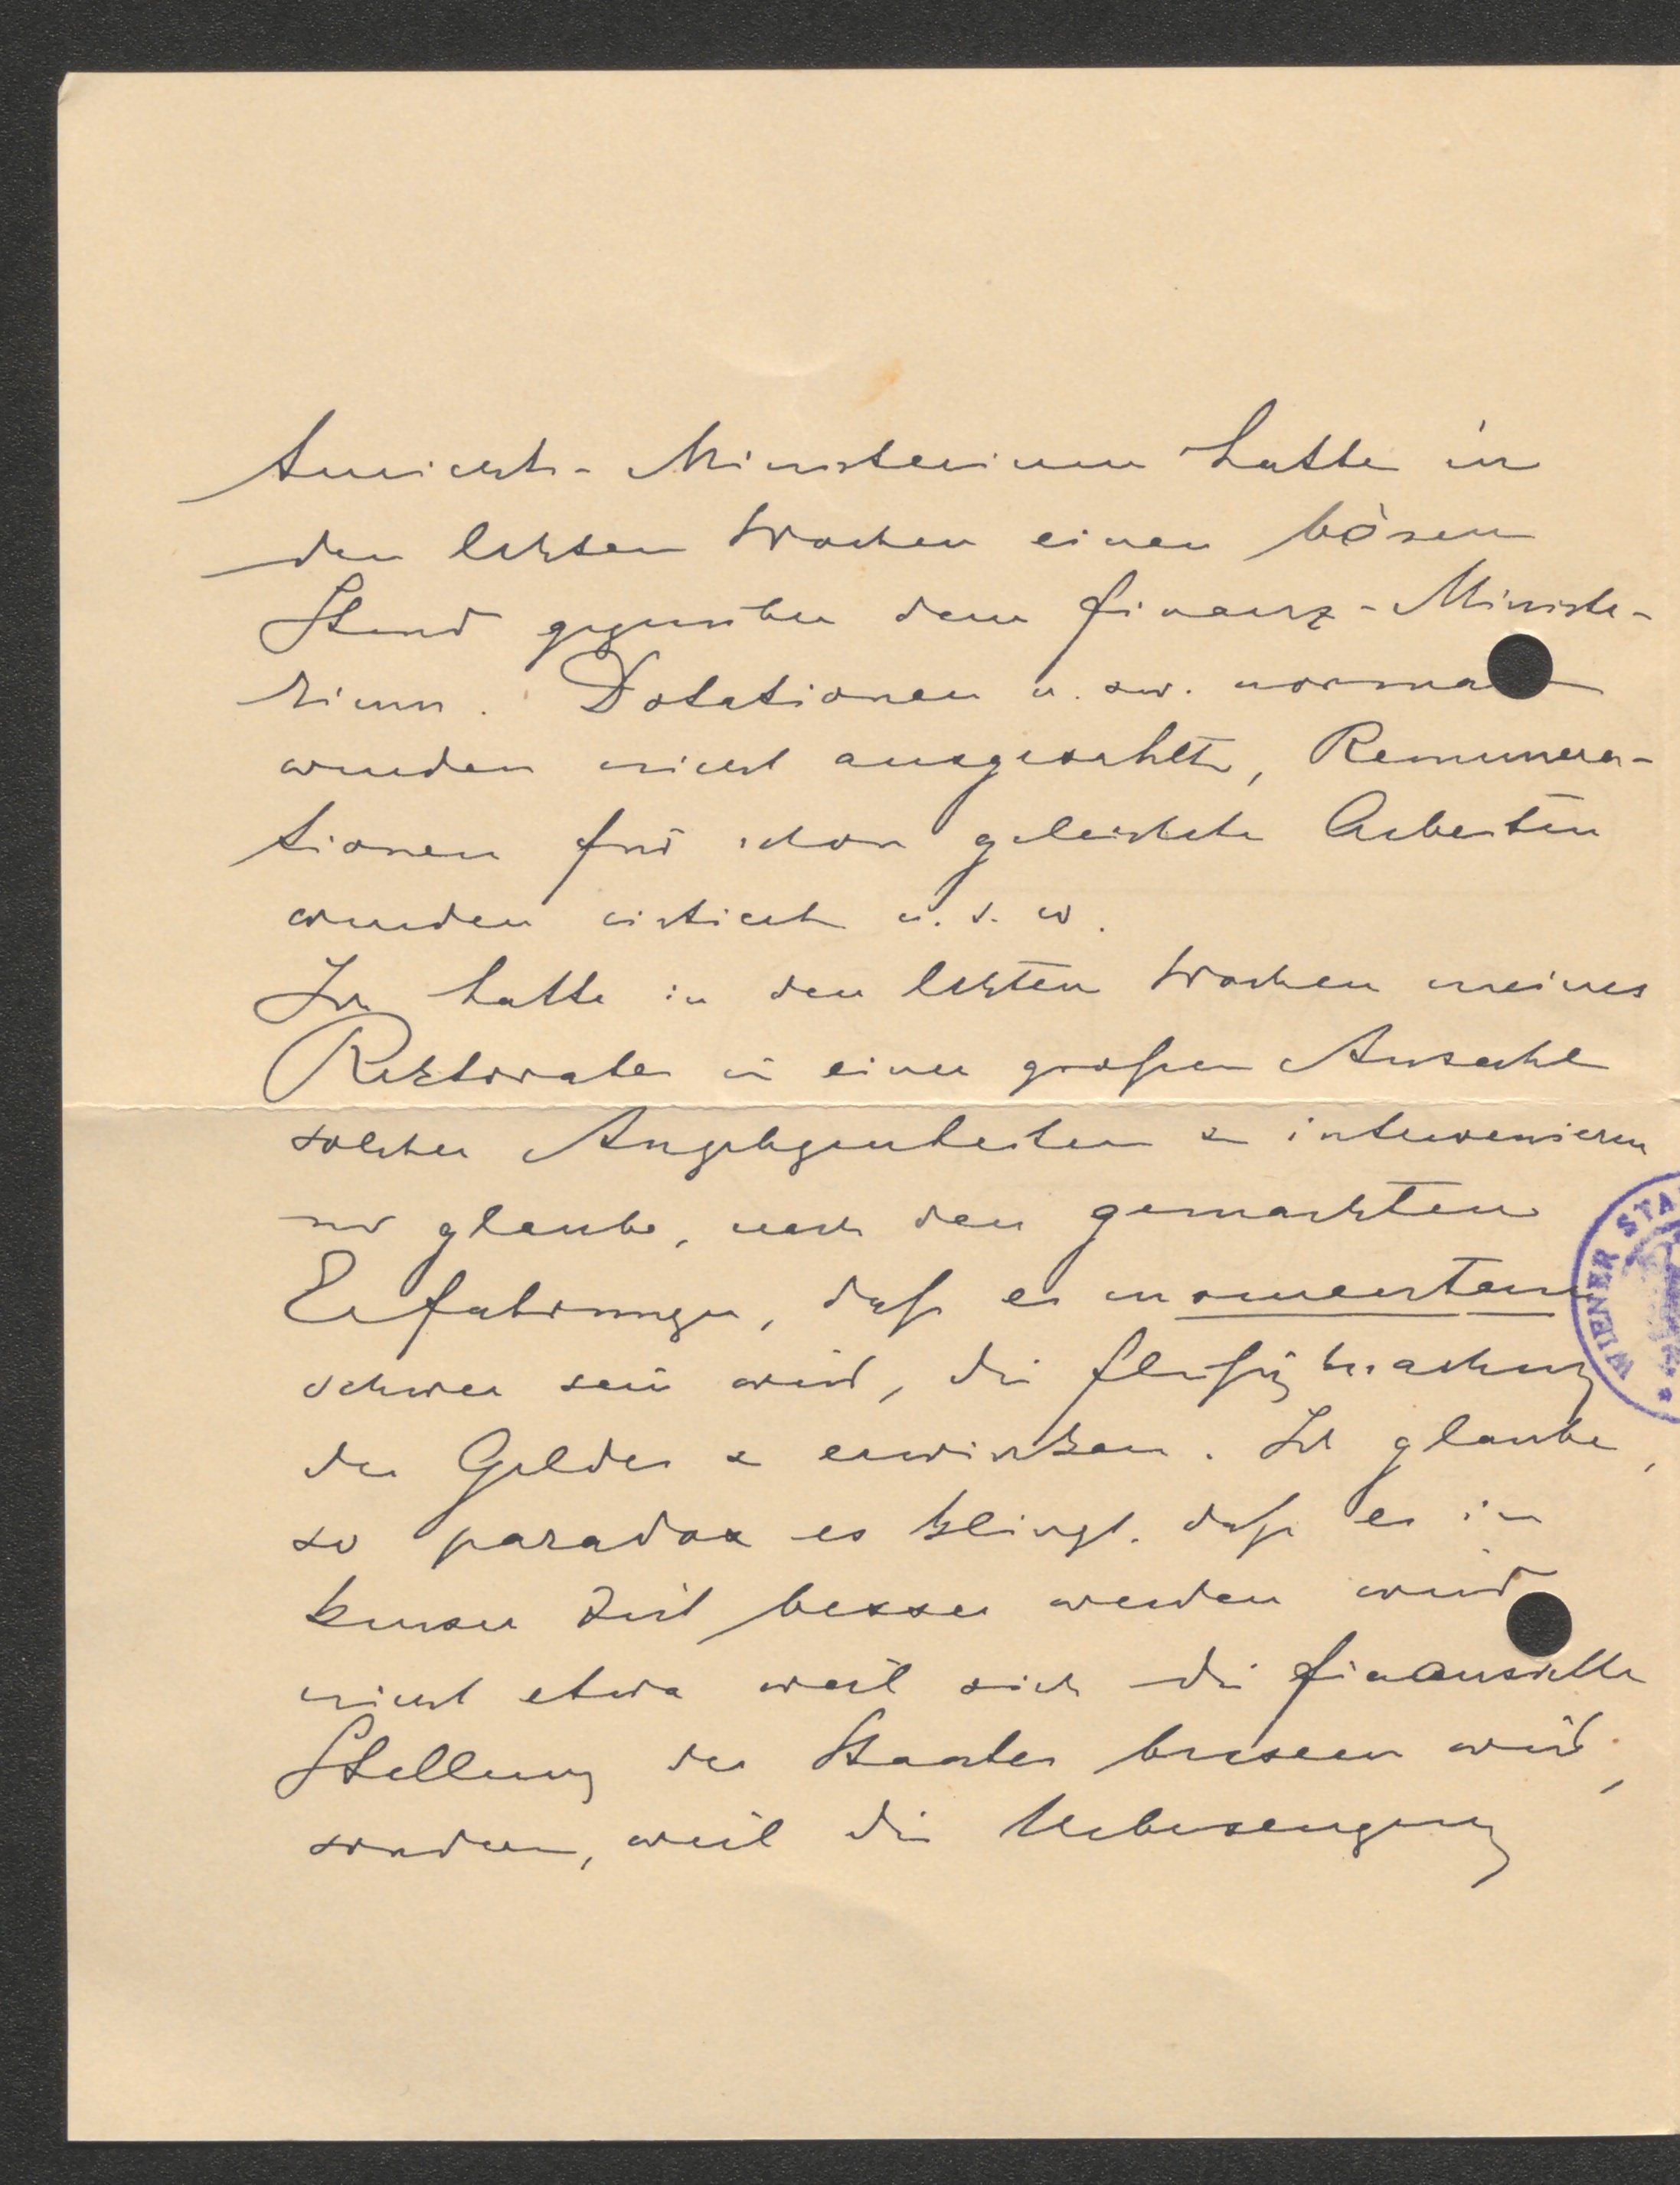 terrichts-Ministerium hatte in
den letzten Wochen einen bösen
Stand gegenüber dem Finanz-Ministe-
rium. Dotationen u. zw. normale
wurden nicht ausgezahlt, Remunera-
tionen für schon geleistete Arbeiten
wurden sistiert u. s. w.
Ich hatte in den letzten Wochen meines
Rektorates in einer großen Anzahl
solcher Angelegenheiten zu intervenieren
und glaube, nach den gemachten
Erfahrungen, daß es momentan
schwer sein wird, die Flüssigmachung
der Gelder zu erwirken. Ich glaube,
so paradox es klingt, daß es in
kurzer Zeit besser werden wird
nicht etwa weil sich die finanzielle
Stellung des Staates bessern wird,
sondern, weil die Ueberzeugung
WIENER STA